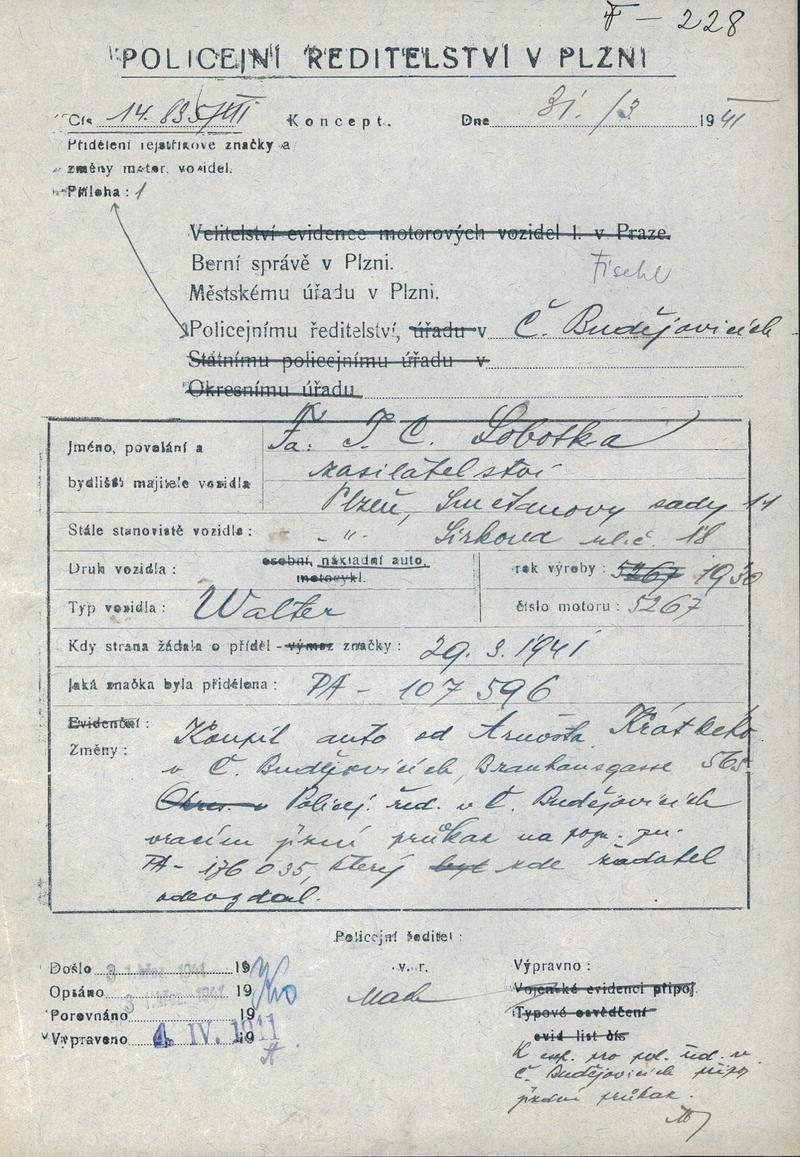 F – 228
POLICEJNÍ ŘEDITELSTVÍ V PLZNI
Čís. 14.835/III Koncept. Dne 31. /3 1941
Přidělení rejstříkové značky a
změny motor. vozidel.
Příloha : 1
Velitelství evidence motorových vozidel I. v Praze.
Berní správě v Plzni.
Fischl
Městskému úřadu v Plzni.
Policejnímu ředitelství, úřadu v Č. Budějovicích
Státnímu policejnímu úřadu v
Okresnímu úřadu
Jméno, povolání a
bydliště majitele vozidla
Fa: I. C. Sobotka
zasilatelství
Plzeň, Smetanovy sady 11
Stálé stanoviště vozidla : – " – Sirkova ulič. 18
Druh vozidla : osobní, nákladní auto,
motocykl.
rok výroby : 5267 1930
Typ vozidla : Walter číslo motoru : 5267
Kdy strana žádala o příděl - výmaz značky : 29. 3. 1941
Jaká značka byla přidělena : PA – 107 596
Evidenční :
Změny :
Koupil auto od Arnošta Krátkého
v Č. Budějovicích, Brauhausgasse 565.
Okres. v Policej. řed. v Č. Budějovicích
vracím jízdní průkaz na pozn. zn.
PA – 176 035, který byl zde žadatel
odevzdal.
Policejní ředitel :
v. r.
Došlo 31. břez. 1941 19
Opsáno 31. břez. 1941 19
Porovnáno 19
Vypraveno 4. IV. 1941 19
Výpravno :
Vojenské evidenci připoj.
Typové osvědčení
evid list čís
K exp. pro pol. řed. v
Č. Budějovicích připoj
jízdní průkaz.